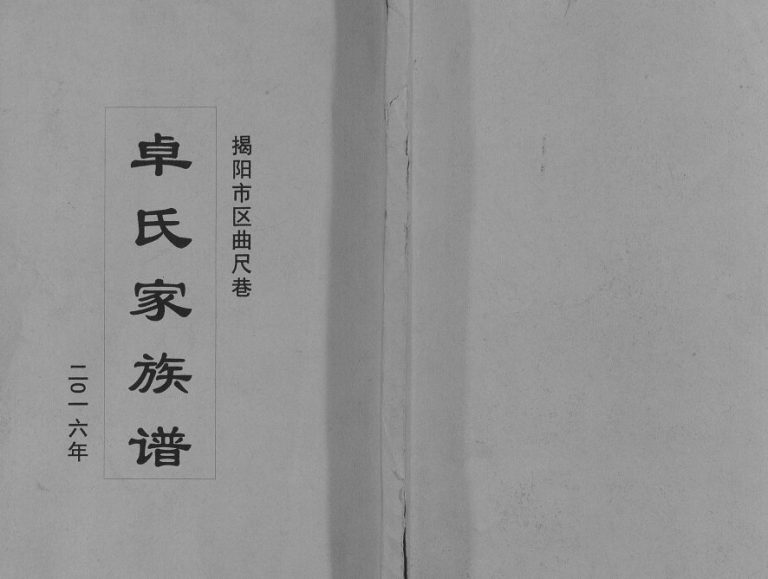 揭阳市区曲尺巷
卓氏家族谱
二〇一六年